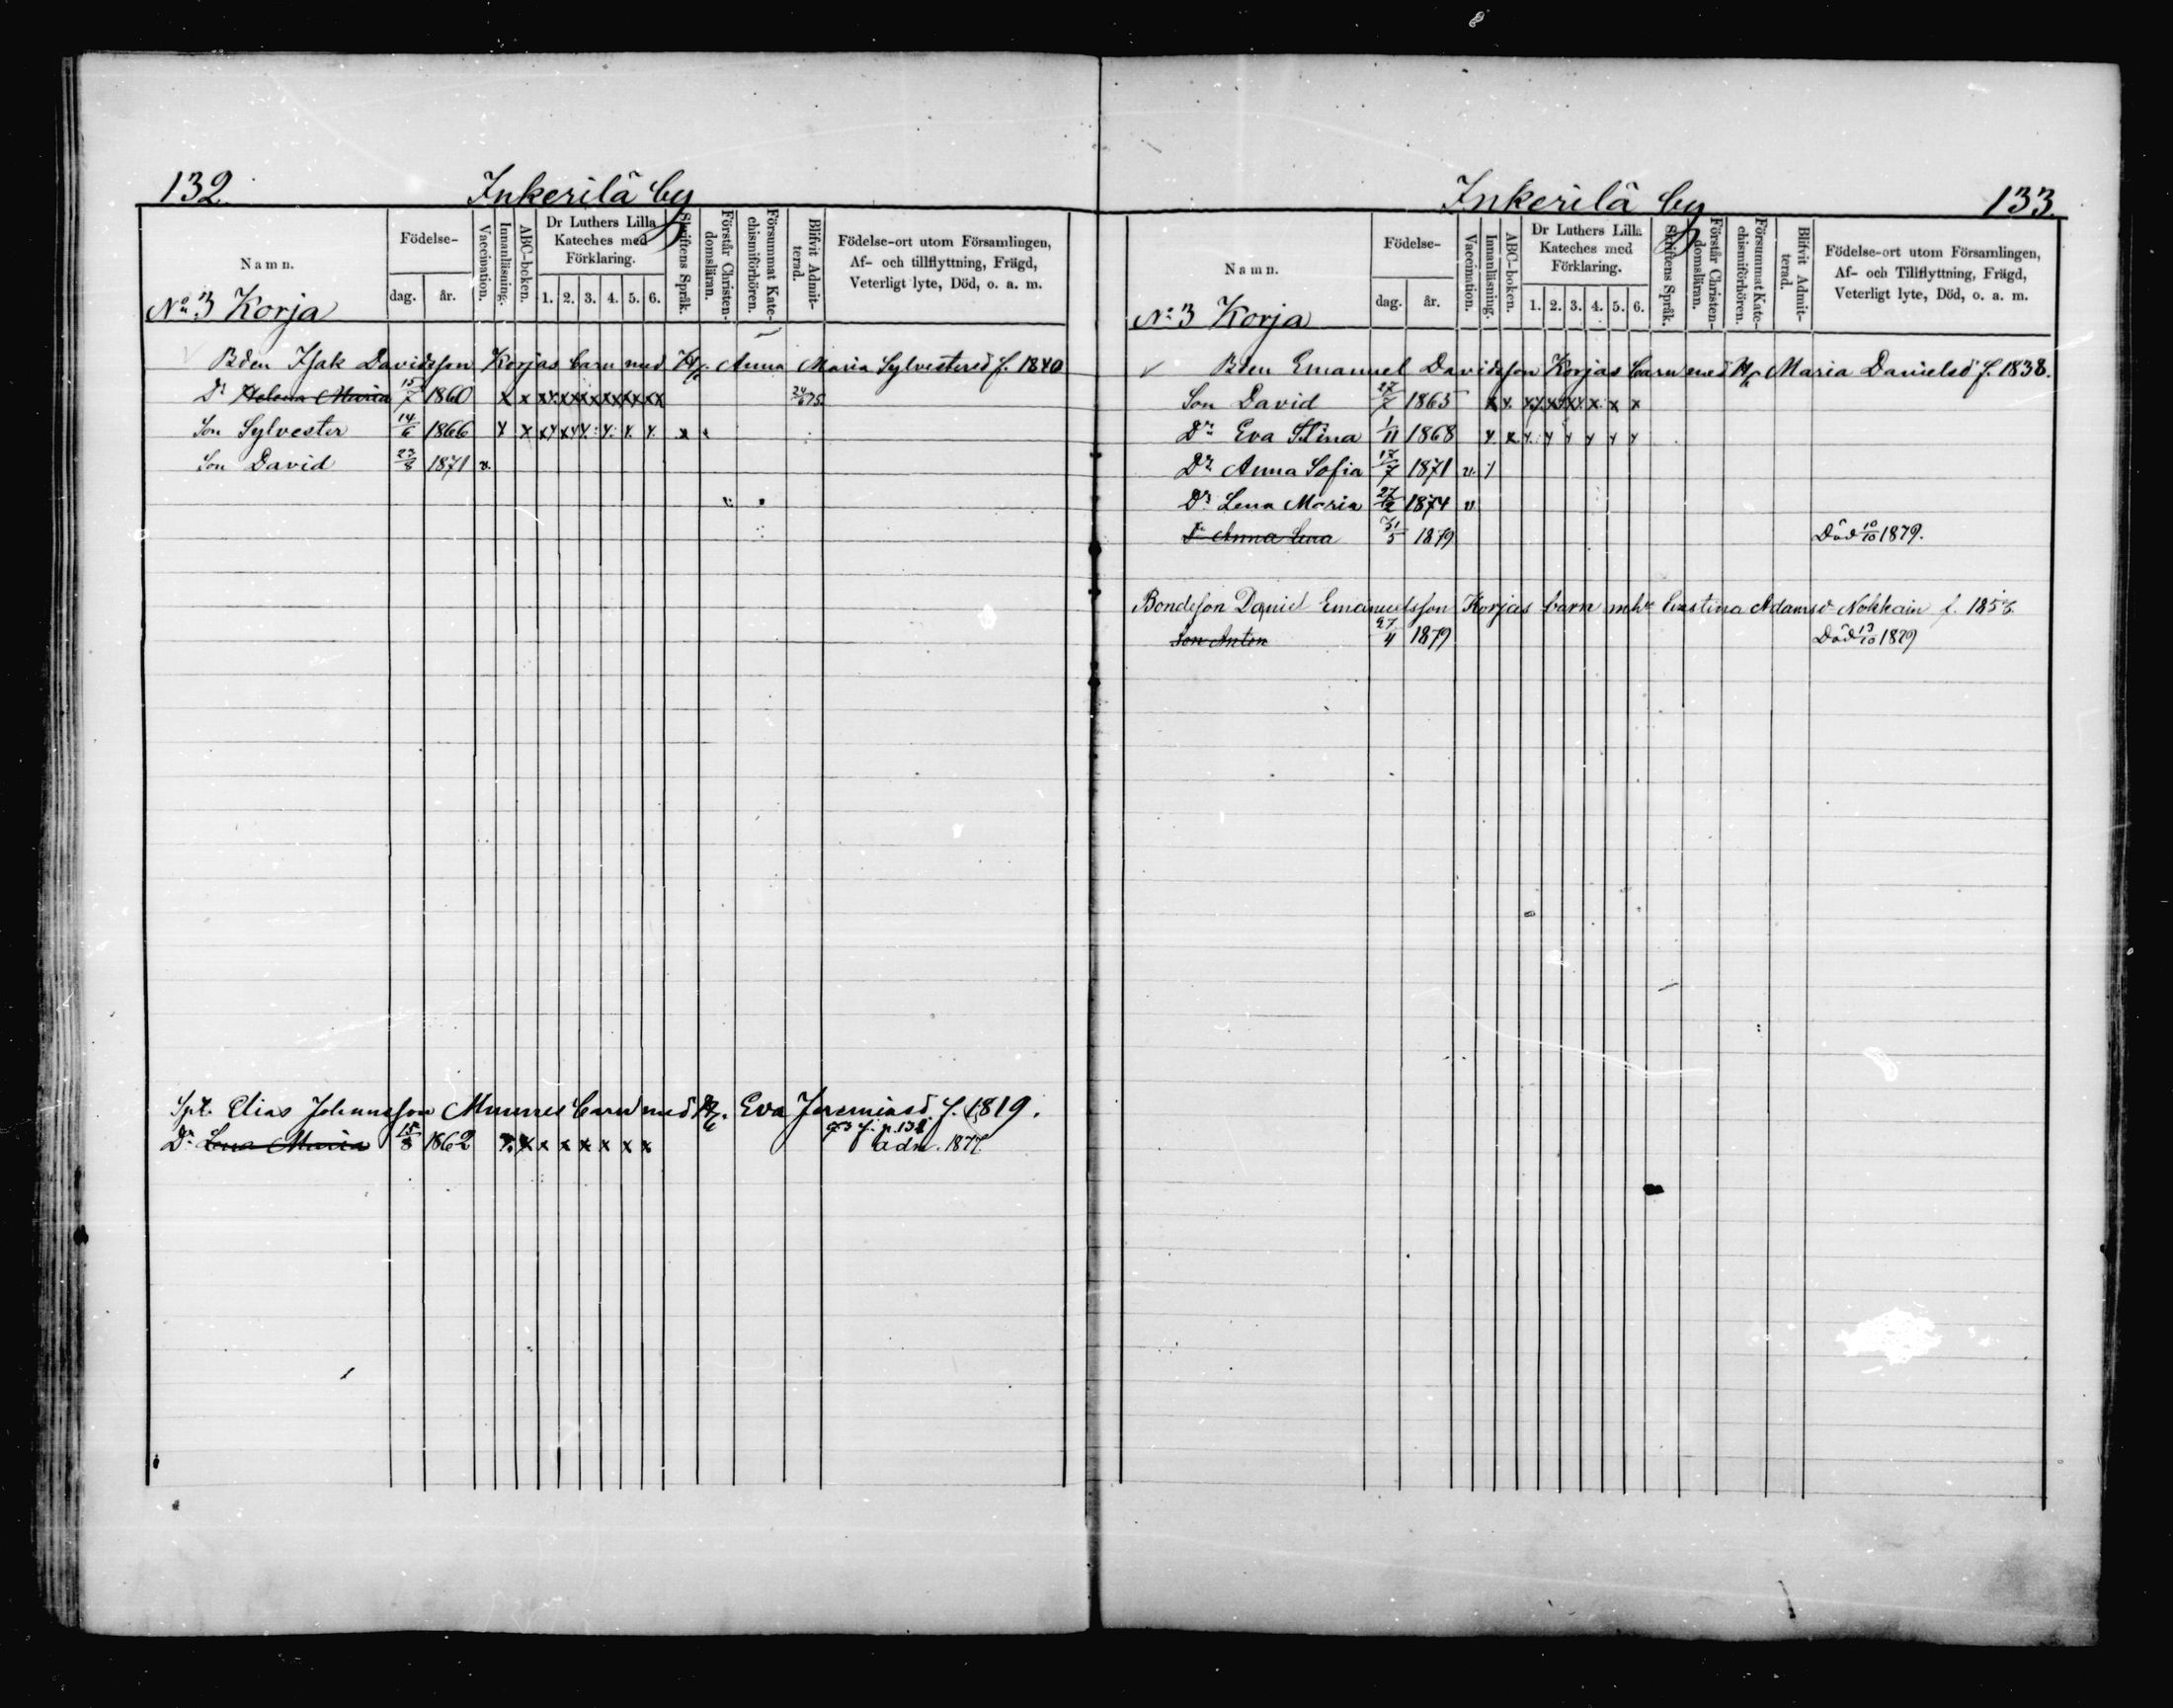 132.
Inkerilä by
Namn.
Födelse-
dag.
år.
Vaccination.
Innanläsning.
ABC-boken.
Dr Luthers Lilla
Kateches med
Förklaring.
1. 2. 3. 4. 5. 6.
Skriftens Språk.
Förstår Christen-
domsläran.
Försummat Kate-
chismiförhören.
Blifvit Admit-
terad.
Födelse-ort utom Församlingen,
Af- och tillflyttning, Frägd,
Veterligt lyte, Död, o. a. m.
No 3 Korja
Bden Isak Davidsson Korjas barn med H. Anna Maria Sylvestersd f. 1840
Dr Helena Maria 15/7 1860 x x xx xx xx xx xx xx 24/6 75.
Son Sylvester 14/6 1866 x x xx xx x x x x x
Son David 23/8 1871 v.
Spt. Elias Johansson Munnes barn med H. Eva Jeremiasd. f. 1819.
Dr Lena Maria 15/8 1862 x x x x x x x x adm. 1877.
133.
Inkerilä by
Namn.
Födelse-
dag.
år.
Vaccination.
Innanläsning.
ABC-boken.
Dr Luthers Lilla
Kateches med
Förklaring.
1. 2. 3. 4. 5. 6.
Skriftens Språk.
Förstår Christen-
domsläran.
Försummat Kate-
chismiförhören.
Blifvit Admit-
terad.
Födelse-ort utom Församlingen,
Af- och Tillflyttning, Frägd,
Veterligt lyte, Död, o. a. m.
No 3 Korja
Bden Emanuel Davidsson Korjas barn med H. Maria Danielsd f. 1838.
Son David 27/7 1865 x x xx xx xx x x x
Dr Eva Stina 1/11 1868 x x x x x x x x
Dr Anna Sofia 17/7 1871 v.
Dr Lena Maria 1874 v
Dr Anna Lena 31/5 1879 Död 10/10 1879.
Bondeson Daniel Emanuelsson Korjas barn mhu Cristina Adamsd Nokkain f.
Son Anton 27/4 1879 Död 13/10 1879